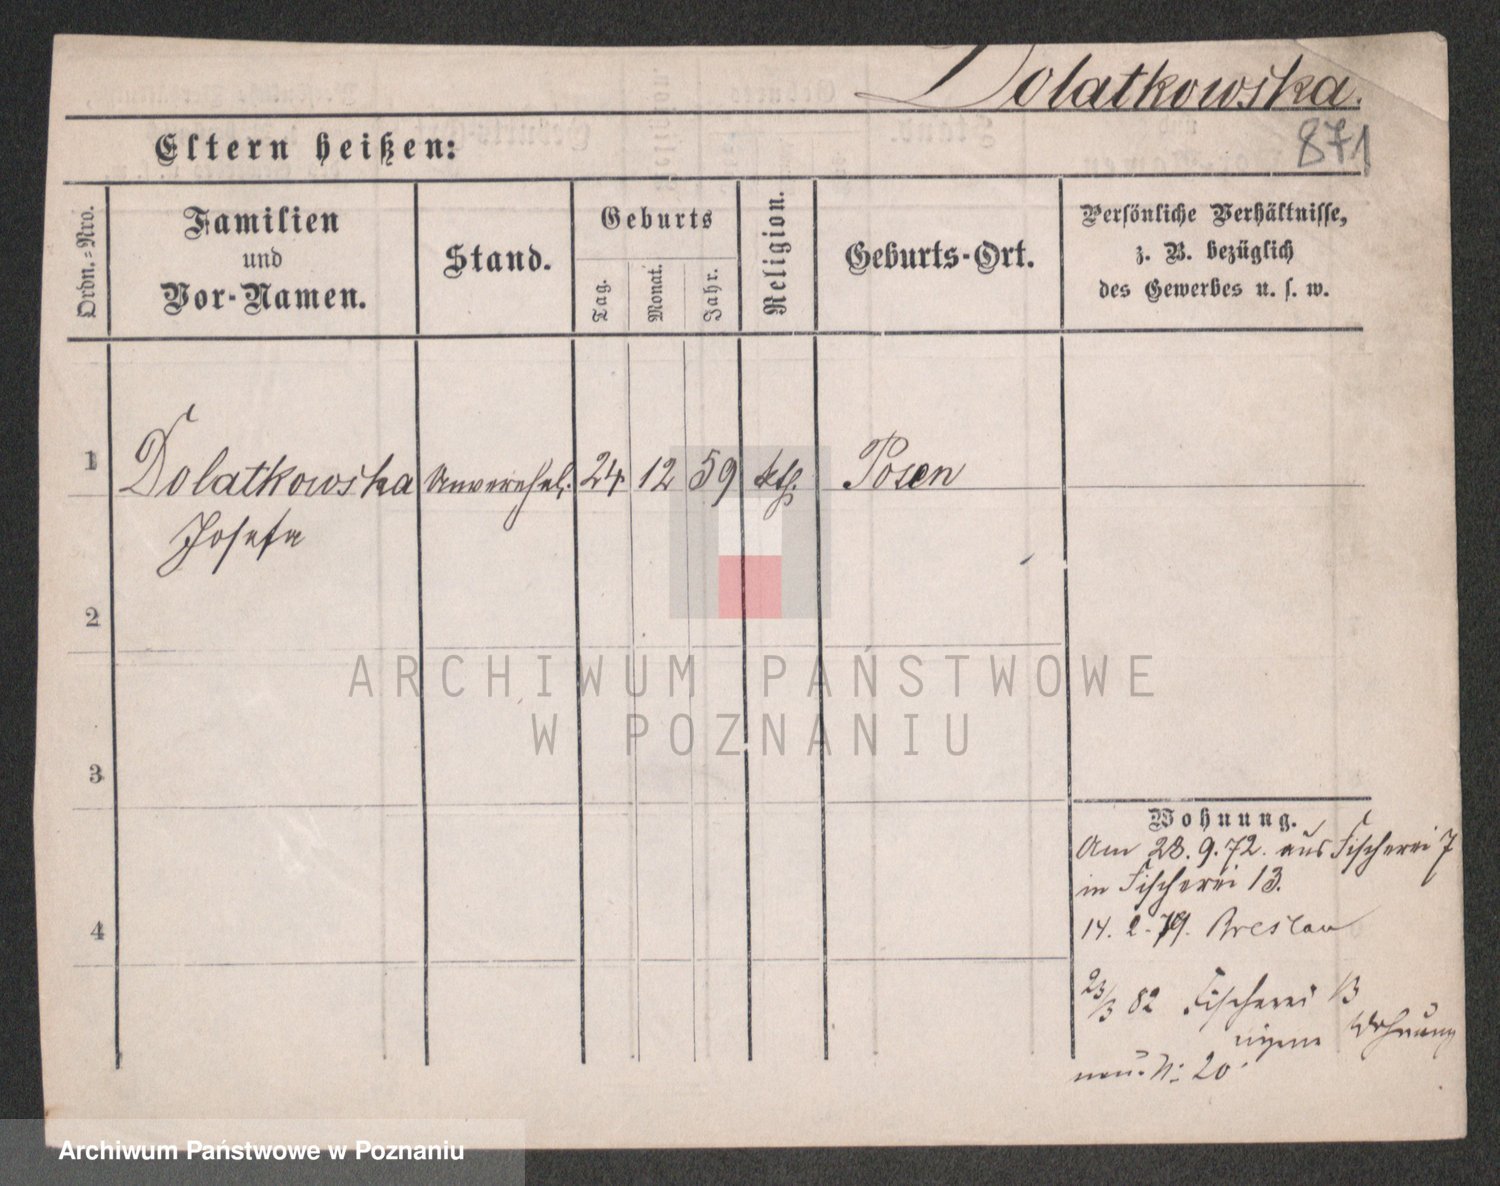 Dolatkowska.
871
Eltern heißen:
Ordn.-Nro.
Familien
und
Vor-Namen.
Stand.
Geburts
Tag.
Monat.
Jahr.
Religion.
Geburts-Ort.
Persönliche Verhältnisse,
z. B. bezüglich
des Gewerbes u. s. w.
1 Dolatkowska Unverehel. 24 12 59 kth. Posen
Josefa
2
3
4
ARCHIWUM PAŃSTWOWE
W POZNANIU
Wohnung.
Am 28.9.72. aus Fischerei 7
in Fischerei 13.
14. 2. 79. Breslau
23/3 82 Fischerei 13
eigene Wohnung
neu: N: 20
Archiwum Państwowe w Poznaniu